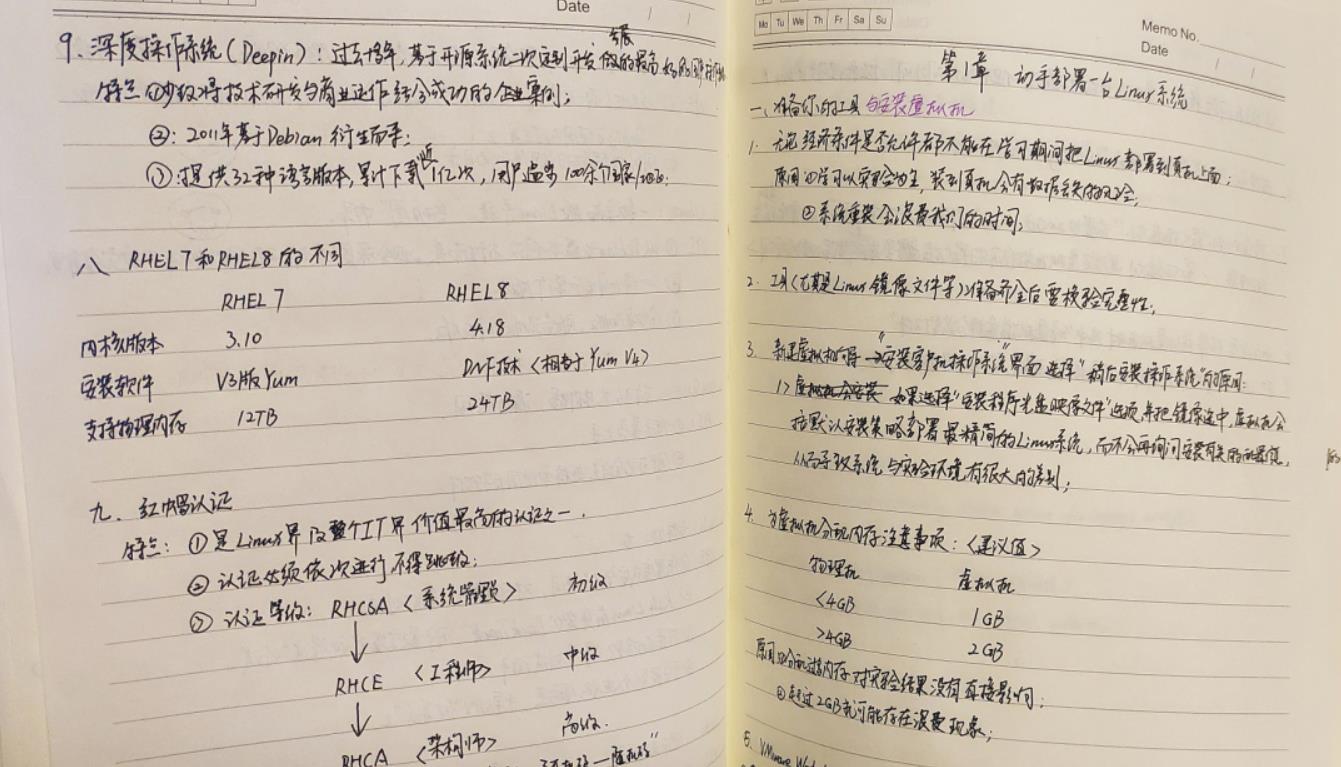 Date
9. 深度操作系统(Deepin): 过去十多年, 基于开源系统二次定制开发 做的最高
特点 ①少数将技术研发与商业运作结合成功的企业案例;
②: 2011年基于Debian 衍生而来;
③: 提供32种语言版本, 累计下载1亿次, 用户遍当100余个国家/
八 RHEL7和RHEL8的不同
RHEL7 RHEL8
内核版本 3.10 4.18
安装软件 V3版Yum DNF技术<相当于Yum V4>
支持物理内存 12TB 24TB
九. 红帽认证
特点: ①是Linux界及整个IT界价值最高的认证之一.
②认证必须依次进行不得跳级;
③认证等级: RHCSA <系统管理员> 初级
RHCE <工程师> 中级
RHCA <架构师> 高级.
Mo Tu We Th Fr Sa Su
Memo No.
Date
第1章 动手部署一台Linux系统
一、准备你的工具与安装虚拟机
1. 无论经济条件是否允许都不能在学习期间把Linux部署到真机上面;
原因①学习以实验为主, 装到真机会有数据丢失的风险;
②系统重装会浪费我们的时间;
2. 工具(尤其是Linux镜像文件等)准备齐全后要校验完整性;
3. 新建虚拟机向导→"安装客户机操作系统"界面选择"稍后安装操作系统"的原因:
1>虚拟机会安装 如果选择"安装程序光盘映像文件"选项, 并把镜像选中, 虚拟机会
按默认安装策略部署最精简的Linux系统, 而不会再询问安装有关的
从而导致系统与实验环境有很大的差别;
4. 为虚拟机分配内存注意事项: <建议值>
物理机 虚拟机
<4GB 1GB
>4GB 2GB
原因①分配过多内存对实验结果没有直接影响;
②超过2GB就可能存在浪费现象;
5. VMware